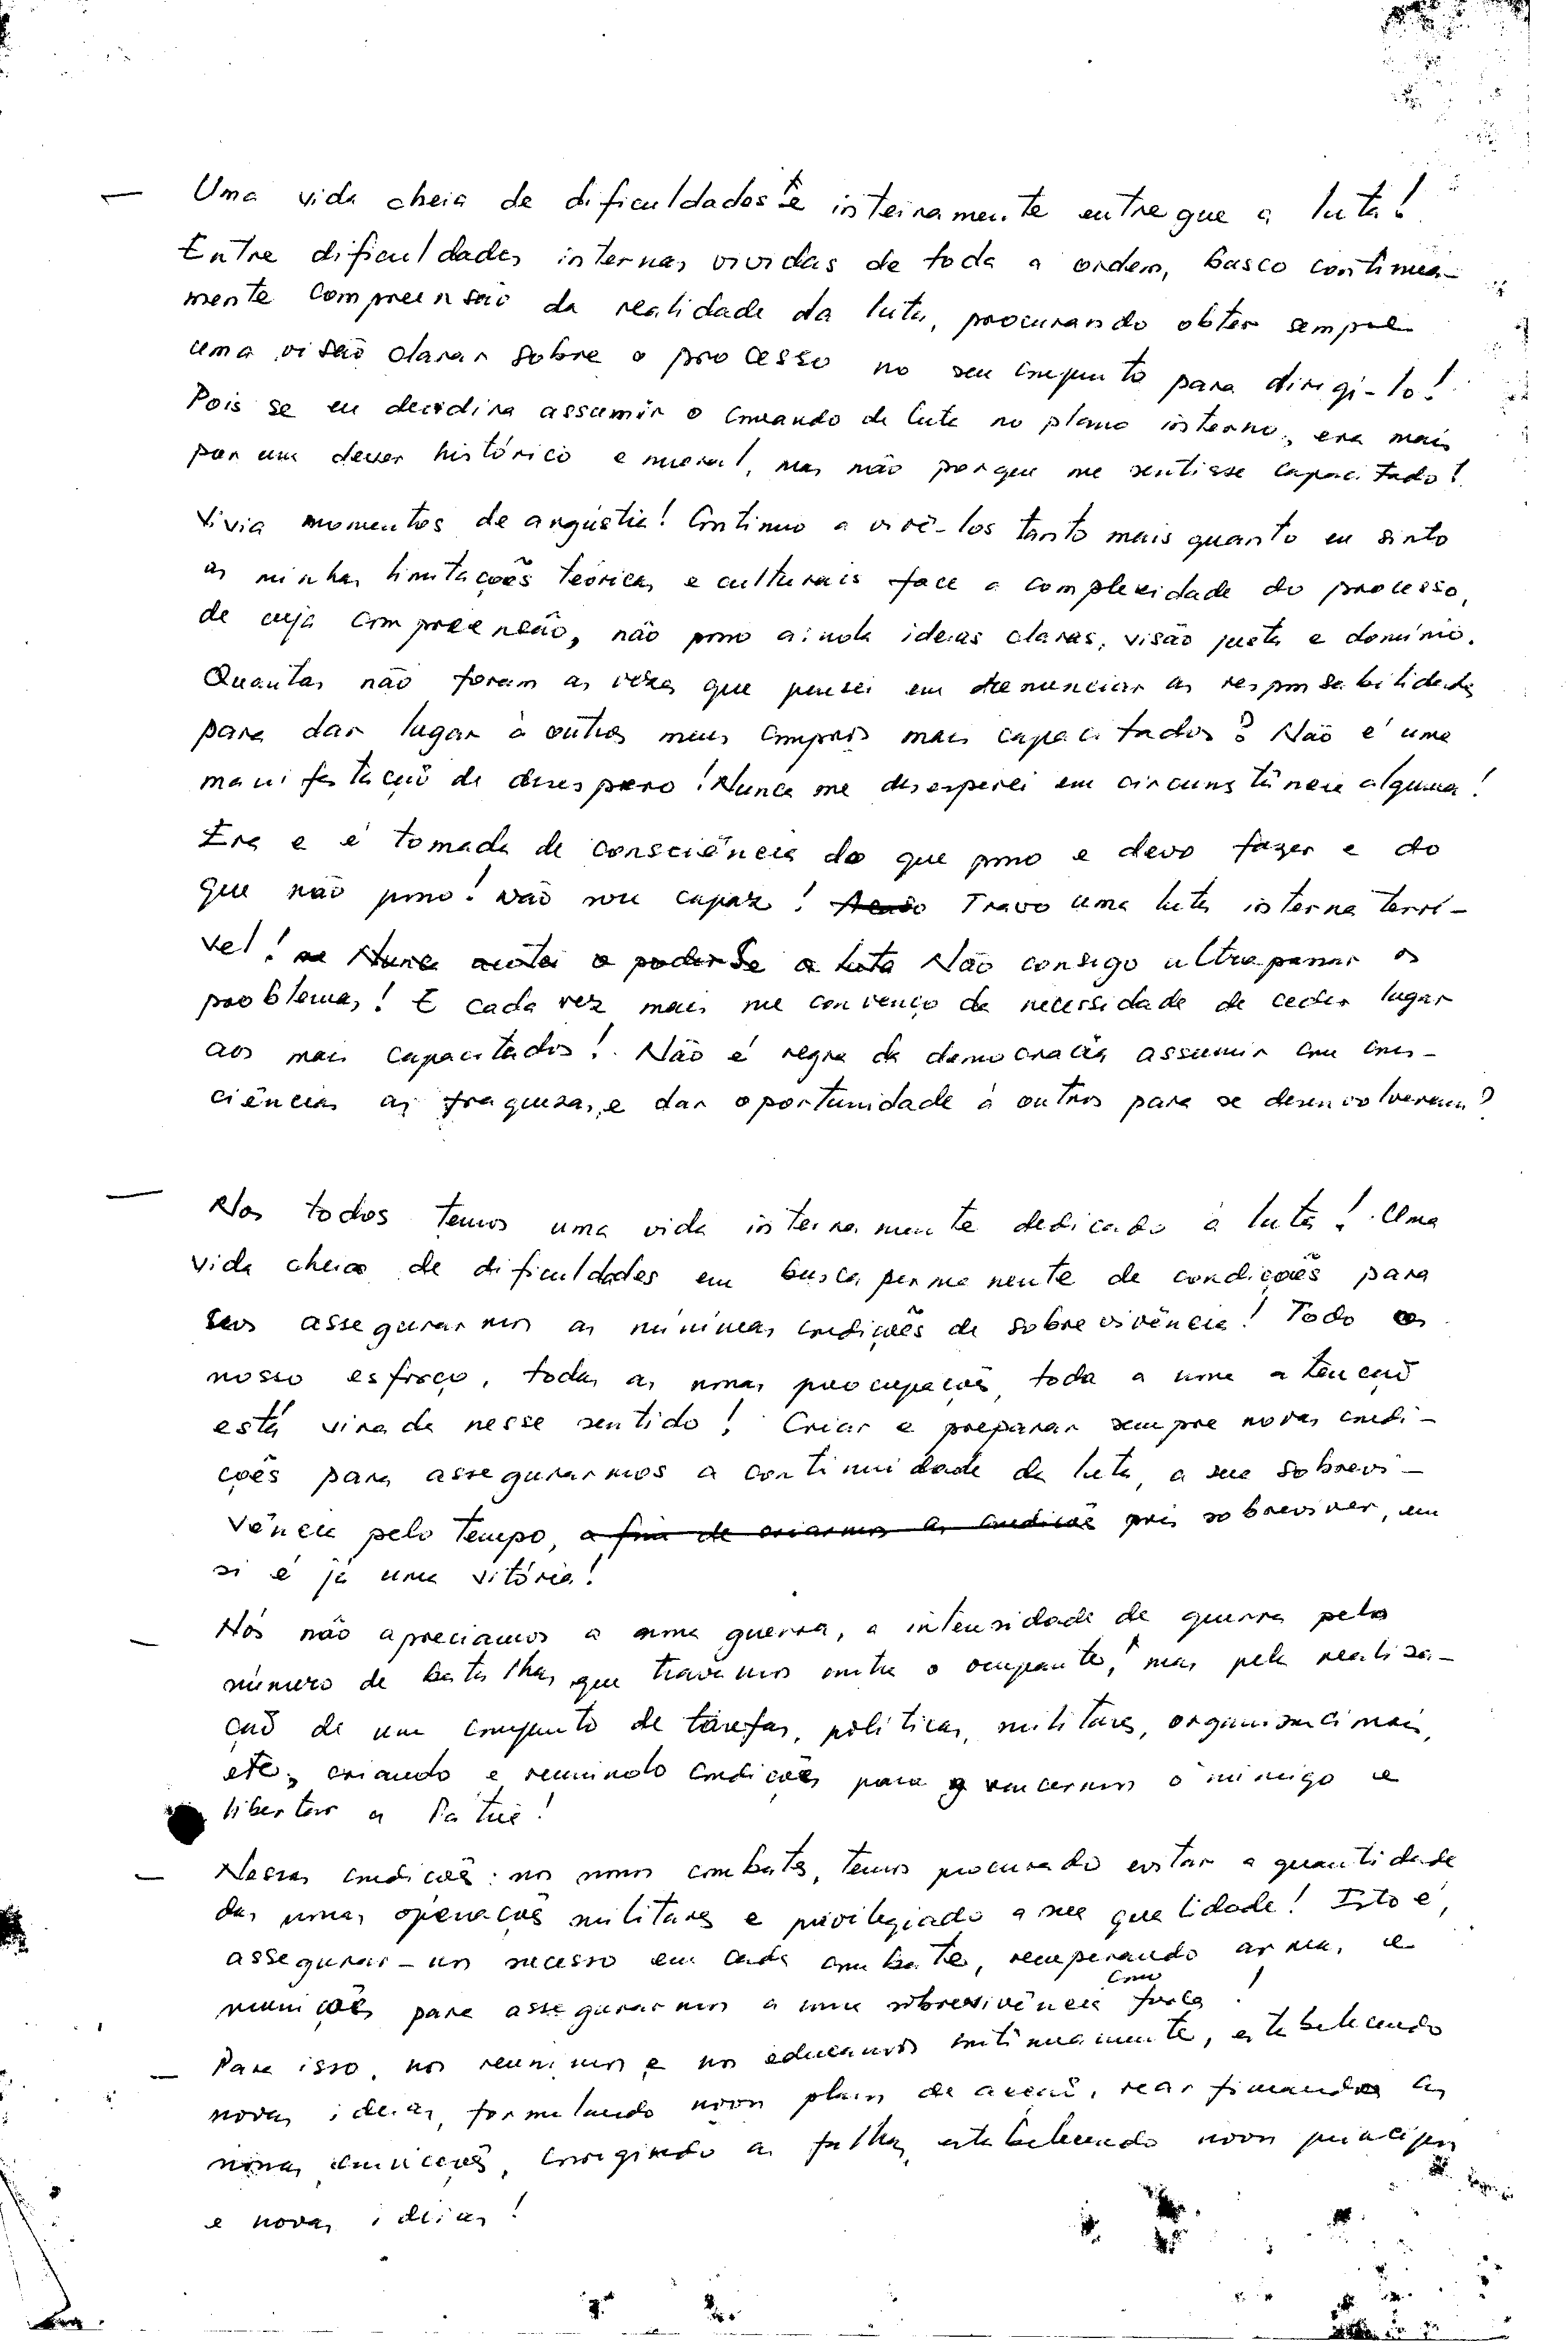 — Uma vida cheia de dificuldades e inteiramente entregue a luta!
Entre dificuldades internas vividas de toda a ordem, busco continua-
mente compreensão da realidade da luta, procurando obter sempre
uma visão clara sobre o processo no seu conjunto para dirigi-lo!
Pois se eu decidira assumir o comando da luta no plano interno, era mais
por um dever histórico e moral, mas não porque me sentisse capacitado!
Vivia momentos de angústia! Continuo a vivê-los tanto mais quanto eu sinto
as minhas limitações teóricas e culturais face a complexidade do processo,
de cuja compreensão, não posso ainda ideias claras, visão justa e domínio.
Quantas não foram as vezes que pensei em renunciar as responsabilidades
para dar lugar à outros meus compas mais capacitados? Não é uma
manifestação de desespero! Nunca me desesperei em circunstância alguma!
Era e é tomada de consciência do que posso e devo fazer e do
que não posso! Não sou capaz! Travo uma luta interna terrí-
vel! Não consigo ultrapassar os
problemas! E cada vez mais me convenço da necessidade de ceder lugar
aos mais capacitados! Não é regra da democracia assumir com cons-
ciências as fraquezas, e dar oportunidade à outros para se desenvolverem?
— Nos todos temos uma vida inteiramente dedicado à luta! Uma
vida cheia de dificuldades em busca permanente de condições para
assegurarmos as mínimas condições de sobrevivência! Todo o
nosso esforço, todas as nossas preocupações, toda a nossa atenção
está virada nesse sentido! Criar e preparar sempre novas condi-
ções para assegurarmos a continuidade da luta, a sua sobrevi-
vência pelo tempo, a fim de criarmos as condições pois sobreviver, em
si é já uma vitória!
— Nós não apreciamos a nossa guerra, a intensidade de guerra pelo
número de batalhas que travamos contra o ocupante, mas pela realiza-
ção de um conjunto de tarefas, políticas, militares, organizacionais,
etc, criando e reunindo condições para vencermos o inimigo e
libertar a Pátria!
— Nessas condições: nos nossos combates, temos procurado evitar a quantidade
das nossas operações militares e privilegiado a sua qualidade! Isto é,
assegurar-nos sucesso em cada combate, recuperando armas e
munições para assegurarmos a nossa sobrevivência como força!
— Para isso, nos reunimos e nos educamos continuamente, estabelecendo
novas ideias, formulando novos planos de acção, reafirmando as
nossas convicções, corrigindo as falhas, estabelecendo novos princípios
e novas ideias!